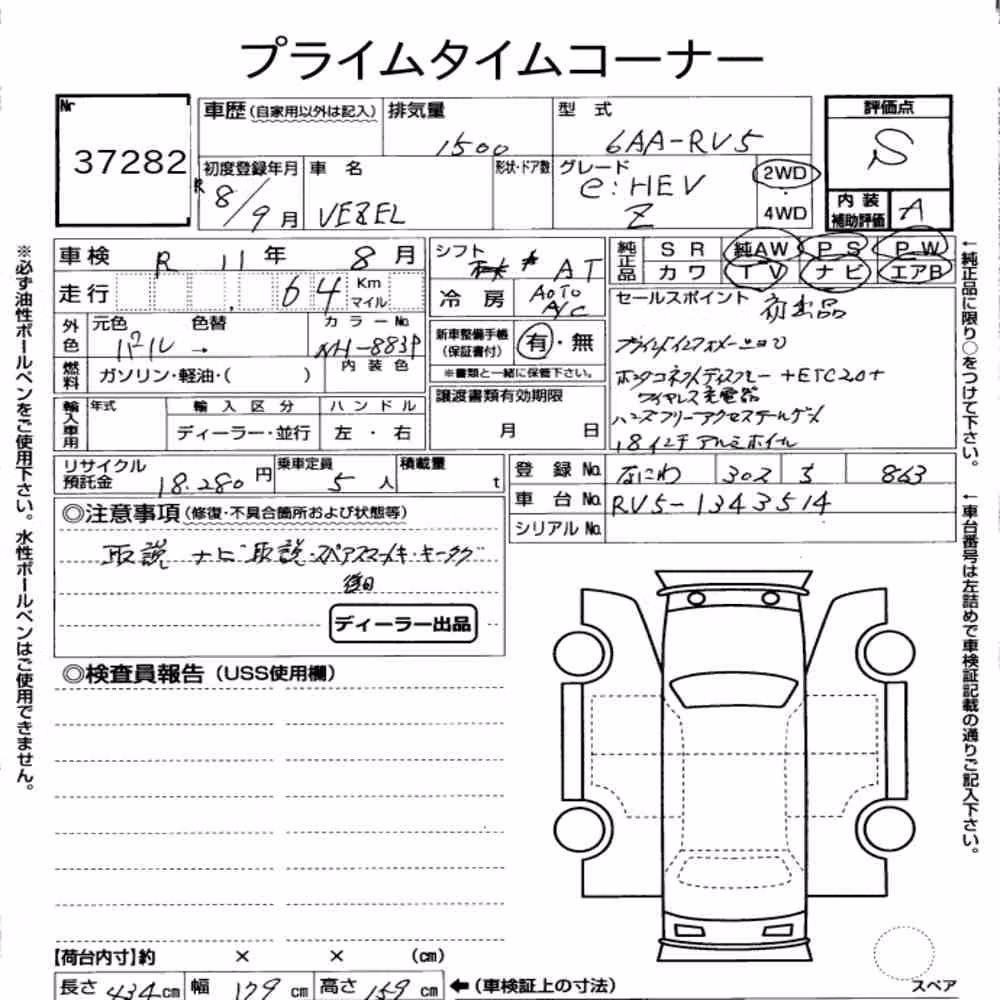 プライムタイムコーナー
Nr
37282
車歴 (自家用以外は記入)
排気量
1500
型式
6AA-RV5
評価点
S
初度登録年月
R 8/9月
車名
VEZEL
形状・ドア数
グレード
e:HEV
Z
2WD
・
4WD
内装
補助評価
A
車検 R 11年 8月
シフト AT
純正品
SR 純AW PS PW
カワ TV ナビ エアB
走行 64 Km
マイル
冷房 AUTO
A/C
セールスポイント 初出品
外色
元色 色替 カラーNo.
パール → NH-883P
新車整備手帳
(保証書付)
有・無
※書類と一緒に保管下さい。
燃料
ガソリン・軽油・( )
内装色
ホンダコネクトディスプレー+ETC2.0+
ワイヤレス充電器
ハンズフリーアクセステールゲート
18インチアルミホイル
輸入車用
年式 輸入区分 ハンドル
ディーラー・並行 左・右
譲渡書類有効期限
月 日
リサイクル
預託金
18.280円
乗車定員
5人
積載量
t
登録No. なにわ 302 863
車台No. RV5-1343514
シリアルNo.
◎注意事項(修復・不具合箇所および状態等)
取説 ナビ取説・スペアスマートキー・キータグ
後日
ディーラー出品
◎検査員報告(USS使用欄)
【荷台内寸】約 × × (cm)
長さ 434cm 幅 179cm 高さ 159cm ←(車検証上の寸法)
スペア
※必ず油性ボールペンをご使用下さい。水性ボールペンはご使用できません。
←純正品に限り○をつけて下さい。
←車台番号は左詰めで車検証記載の通りご記入下さい。